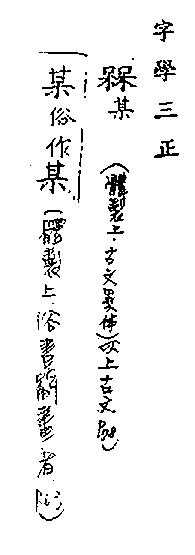 字學三正
槑某(體製上·古文異体)以上古文
某俗作某(體製上·俗書簡畫者